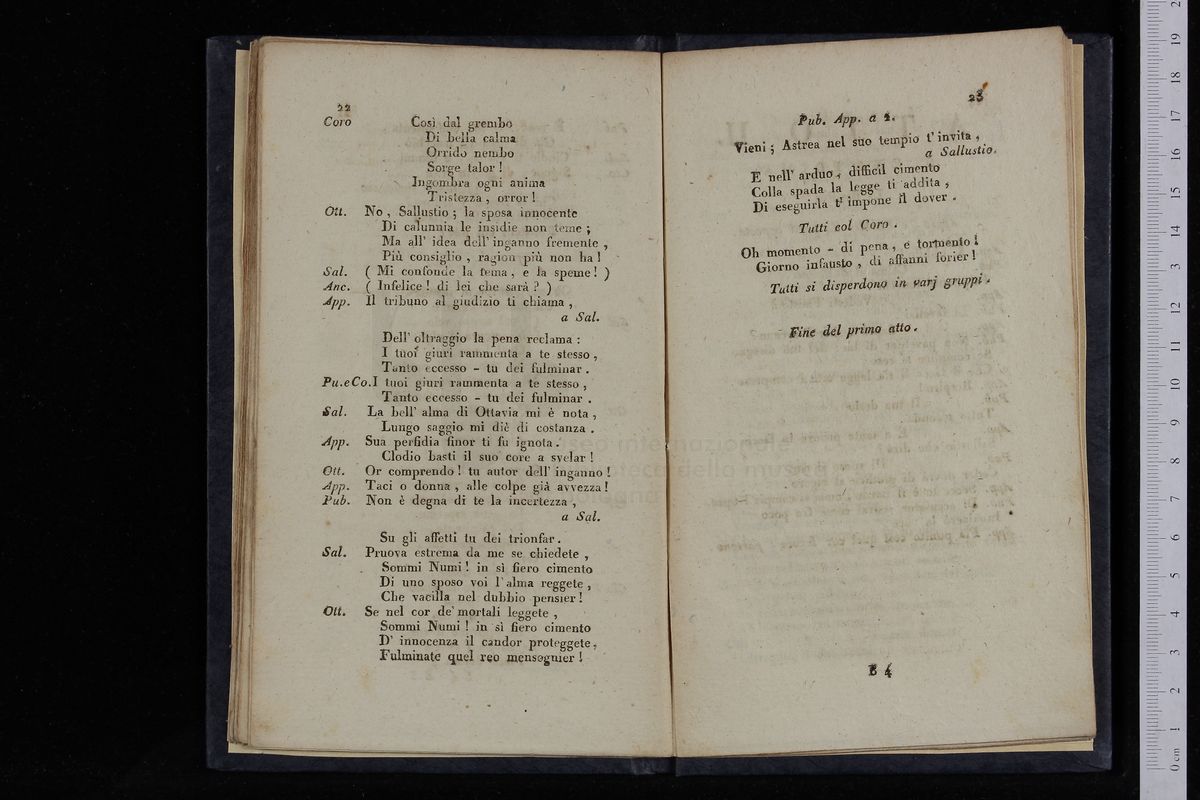 22
Coro Così dal grembo
Di bella calma
Orrido nembo
Sorge talor !
Ingombra ogni anima
Tristezza , orror !
Ott. No , Sallustio ; la sposa innocente
Di calunnia le insidie non teme ;
Ma all' idea dell' inganno fremente ,
Più consiglio , ragion più non ha !
Sal. ( Mi confonde la tema , e la speme ! )
Anc. ( Infelice ! di lei che sarà ? )
App. Il tribuno al giudizio ti chiama ,
a Sal.
Dell' oltraggio la pena reclama :
I tuoi giuri rammenta a te stesso ,
Tanto eccesso - tu dei fulminar .
Pu.eCo. I tuoi giuri rammenta a te stesso ,
Tanto eccesso - tu dei fulminar .
Sal. La bell' alma di Ottavia mi è nota ,
Lungo saggio mi diè di costanza .
App. Sua perfidia finor ti fu ignota .
Clodio basti il suo core a svelar !
Ott. Or comprendo ! tu autor dell' inganno !
App. Taci o donna , alle colpe già avvezza !
Pub. Non è degna di te la incertezza ,
a Sal.
Su gli affetti tu dei trionfar .
Sal. Pruova estrema da me se chiedete ,
Sommi Numi ! in sì fiero cimento
Di uno sposo voi l' alma reggete ,
Che vacilla nel dubbio pensier !
Ott. Se nel cor de' mortali leggete ,
Sommi Numi ! in sì fiero cimento
D' innocenza il candor proteggete ,
Fulminate quel reo mensognier !
23
Pub. App. a 2.
Vieni ; Astrea nel suo tempio t' invita ,
a Sallustio.
E nell' arduo , difficil cimento
Colla spada la legge ti addita ,
Di eseguirla t' impone il dover .
Tutti col Coro .
Oh momento - di pena , e tormento !
Giorno infausto , di affanni forier !
Tutti si disperdono in varj gruppi .
Fine del primo atto .
B 4